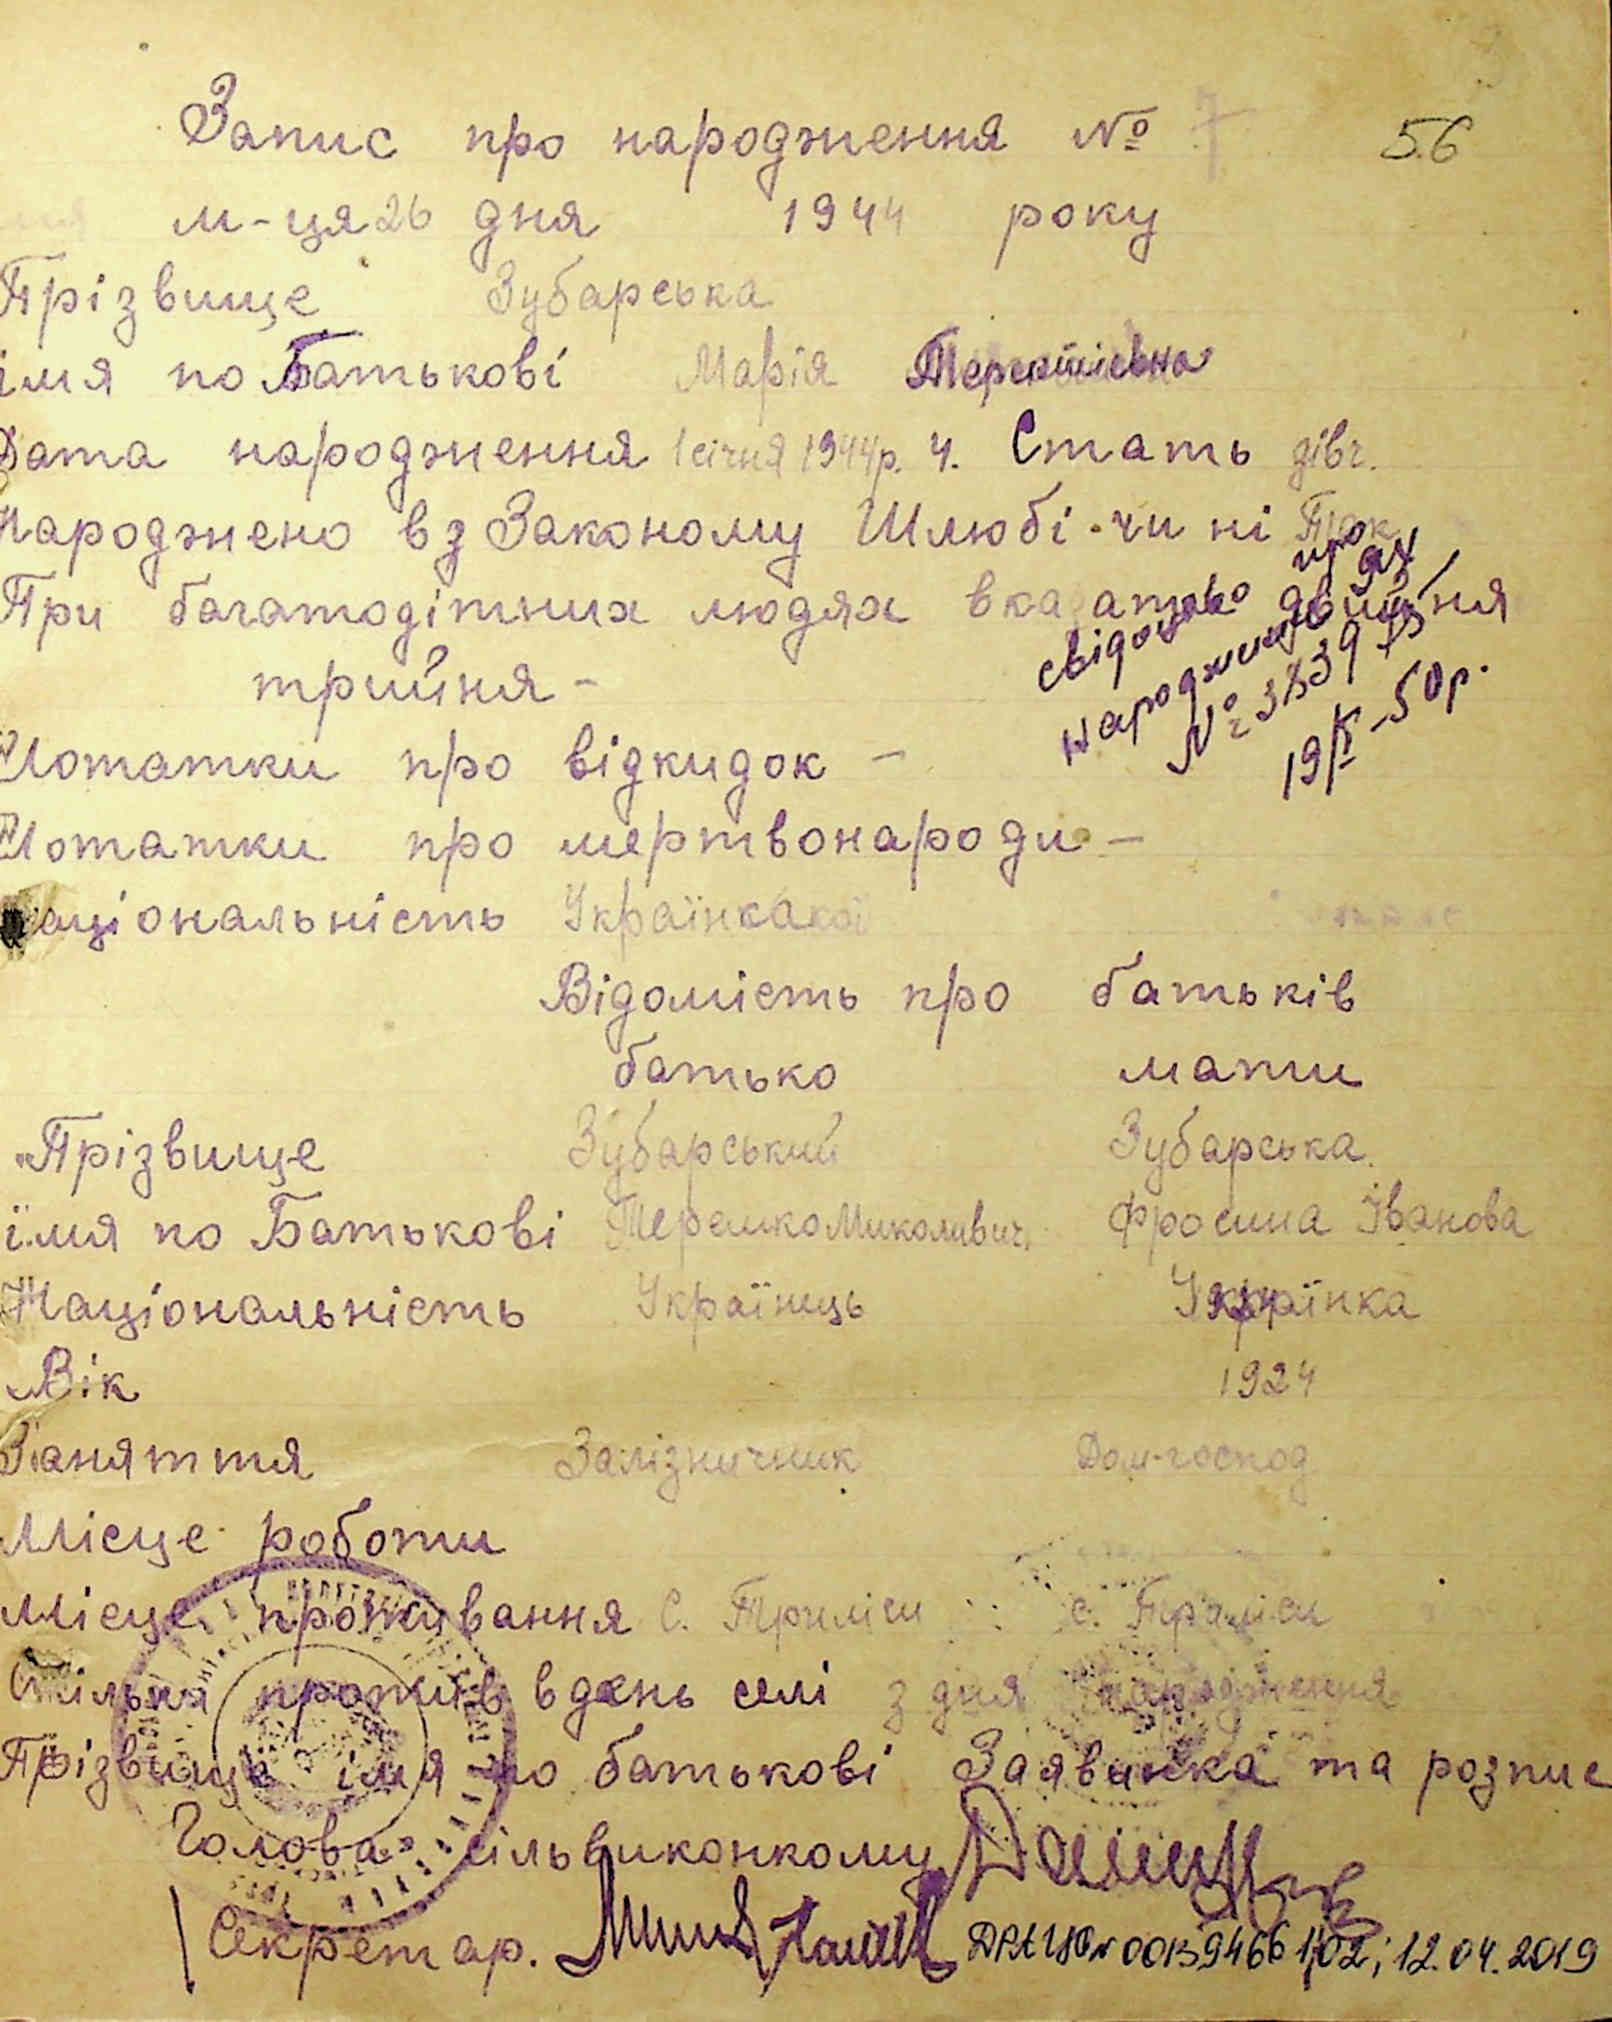 Запис про народження № 7 56
м-ця 26 дня 1944 року
Прізвище Зубарська
імя по Батькові Марія
Дата народження 1 січня 1944 р. ч. Стать дівч.
Народжено в з Законому Шлюбі - чи ні Так
При багатодітних людях вказати двійня
трийня -
свідоцтво про
народження
19/V - 50 р.
Нотатки про відкидок -
Нотатки про мертвонароди -
Національність Українка
Відомість про батьків
батько мати
Прізвище Зубарський Зубарська
імя по Батькові Терешко Миколавич Фросина Іванова
Національність Українець Українка
Вік 1924
Заняття Залізничник Дом-господ
Місце роботи
Місце проживання С. Триліси с. Триліси
Скільки прожив в день селі з дня народження
Прізвище імя по батькові Заявника та розпис
Голова сільвиконкому
Секретар.
12.04.2019